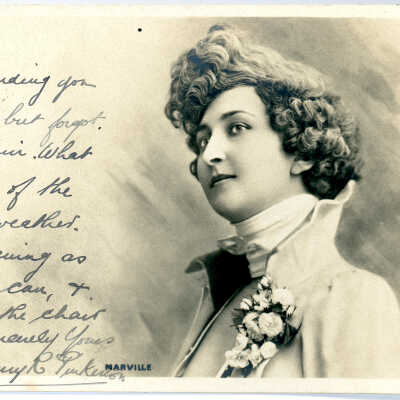 nding you
but forgot.
in. What
of the
weather.
ening as
can, +
the chair
ncerely Yours
MARVILLE